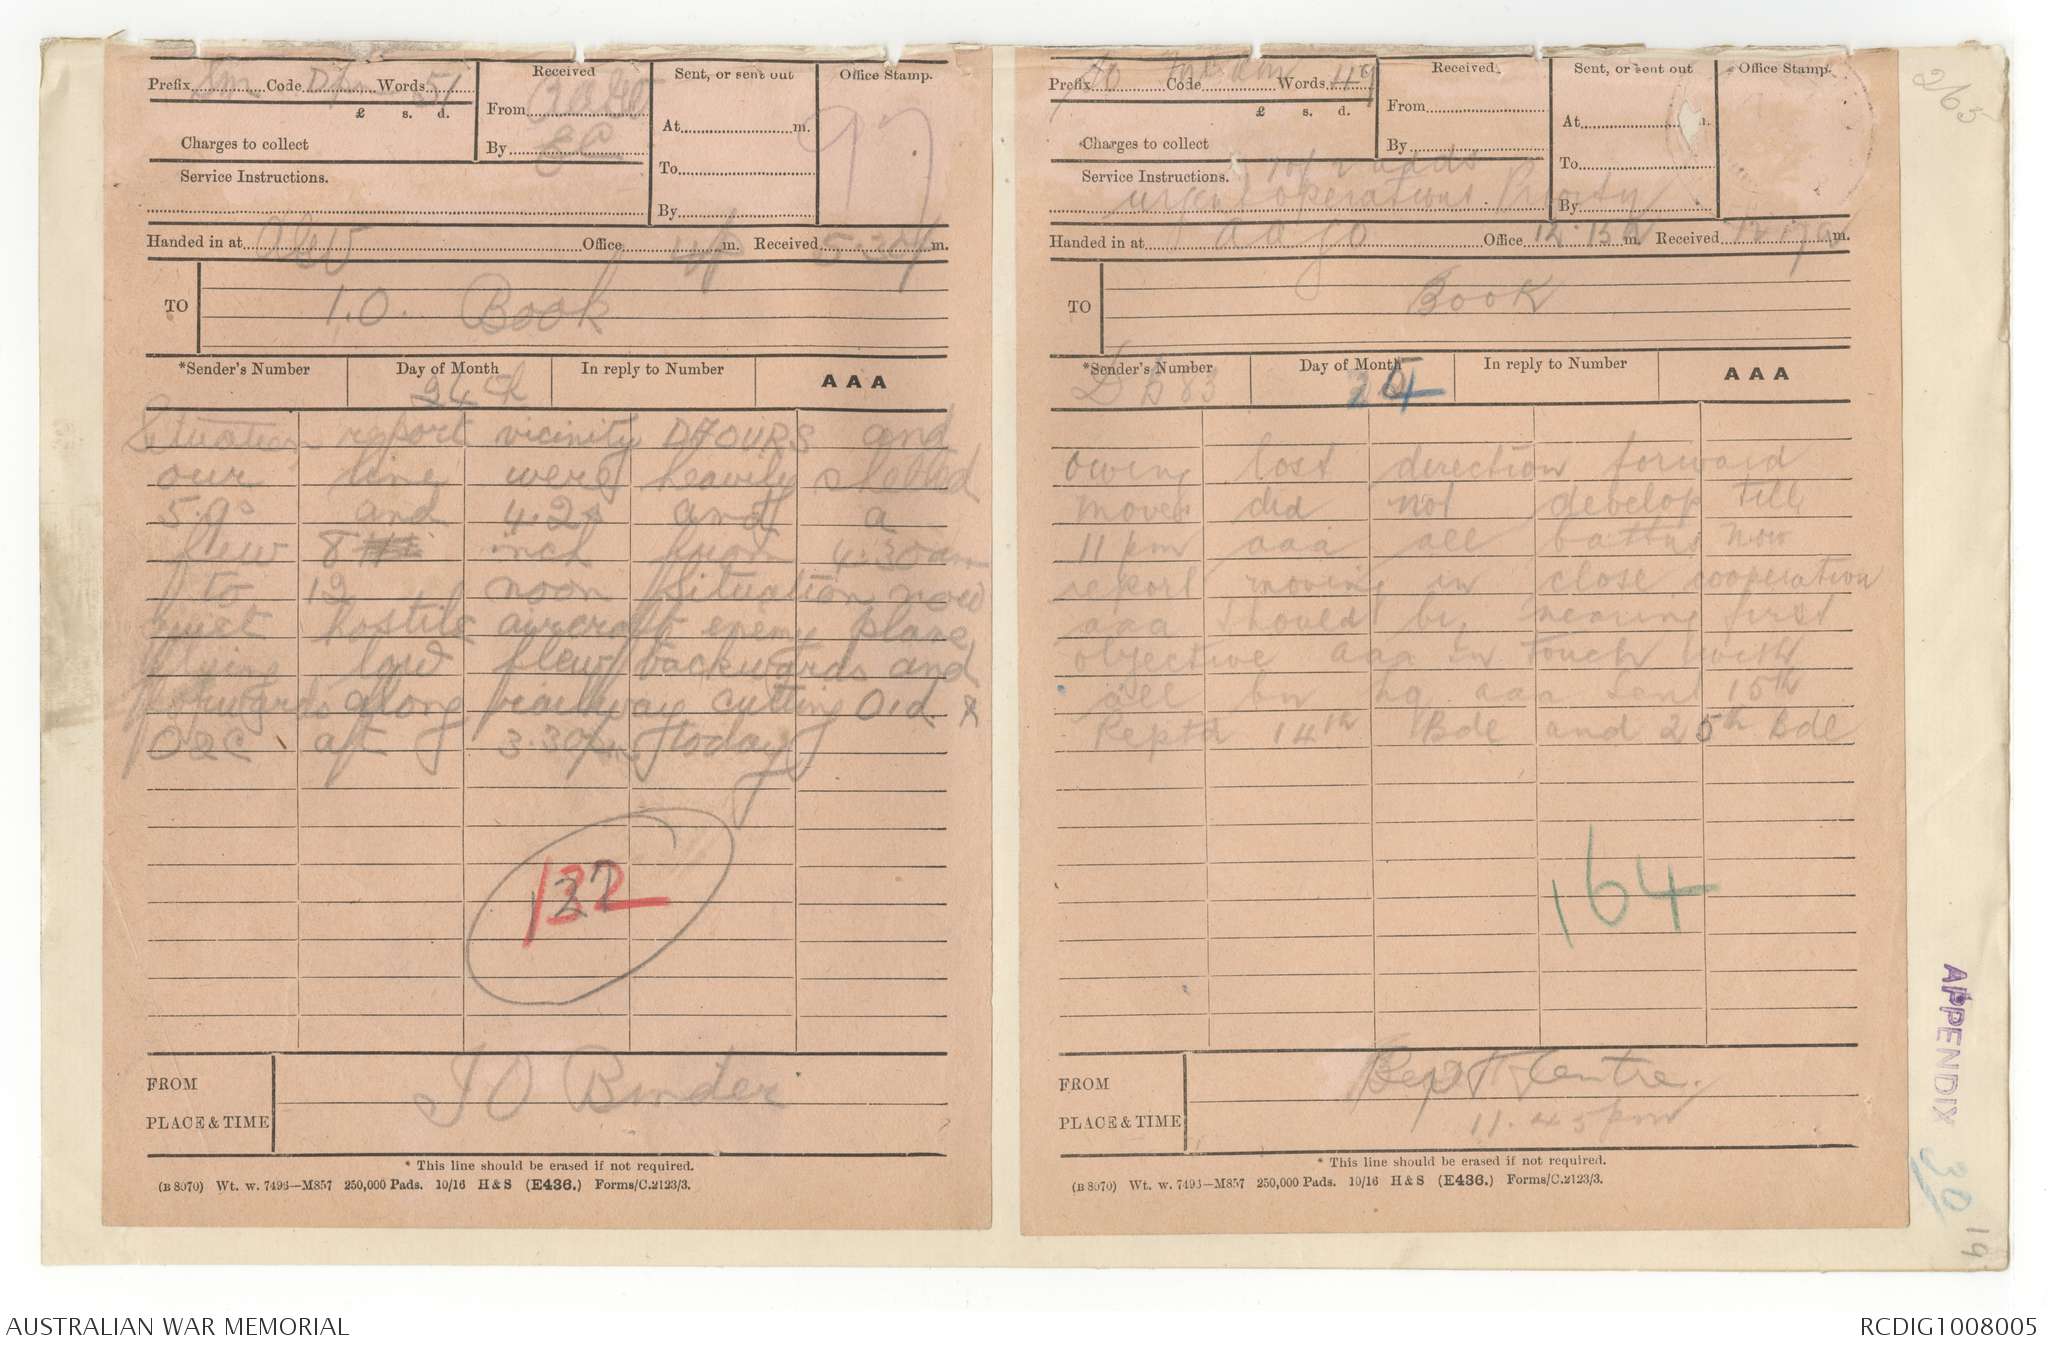 Prefix Sm Code Words 51
Received
From
By
Sent, or sent out
At m.
To
By
Office Stamp.
97
£ s. d.
Charges to collect
Service Instructions.
Handed in at Office m. Received m.
TO
I.O. Book
*Sender's Number
Day of Month
24th
In reply to Number
AAA
Situation report vicinity DAOURS and
our line were heavily shelled
5.9s and 4.2s and a
few 8 inch from 4.30am
to 12 noon Situation now
quiet hostile aircraft enemy plane
flying low flew backwards and
forwards along railway cutting O1d &
O2c at 3.30pm today
132
FROM
PLACE & TIME
I O Binder
* This line should be erased if not required.
(B 8070) Wt. w. 7496—M857 250,000 Pads. 10/16 H & S (E436.) Forms/C.2123/3.
Prefix Code Words
Received
From
By
Sent, or sent out
At m.
To
By
Office Stamp.
£ s. d.
Charges to collect
Service Instructions.
urgent operations Priority
Handed in at Office 12.15a m. Received 12.17a m.
TO
Book
*Sender's Number
83
Day of Month
In reply to Number
AAA
owing lost direction forward
moves did not develop till
11 pm aaa all battns now
report moving in close cooperation
aaa Should be nearing first
objective aaa In touch with
all bn hq aaa Sent 15th
Reptd 14th Bde and 25th Bde
164
FROM
PLACE & TIME
Rept Centre.
11.45pm
* This line should be erased if not required.
(B 8070) Wt. w. 7493—M857 250,000 Pads. 10/16 H & S (E436.) Forms/C.2123/3.
263
APPENDIX 30
19
AUSTRALIAN WAR MEMORIAL
RCDIG1008005